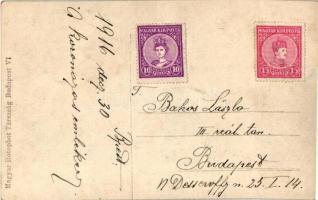 Magyar Rotophot Társaság Budapest VI.
1916 dec 30
Bpest.
A koronázás emlékére
MAGYAR KIR. POSTA
10 10
MAGYAR KIR. POSTA
15 15
Bakos László
III reál. tan.
Budapest
VI Dessewffy u. 25. I. 14.